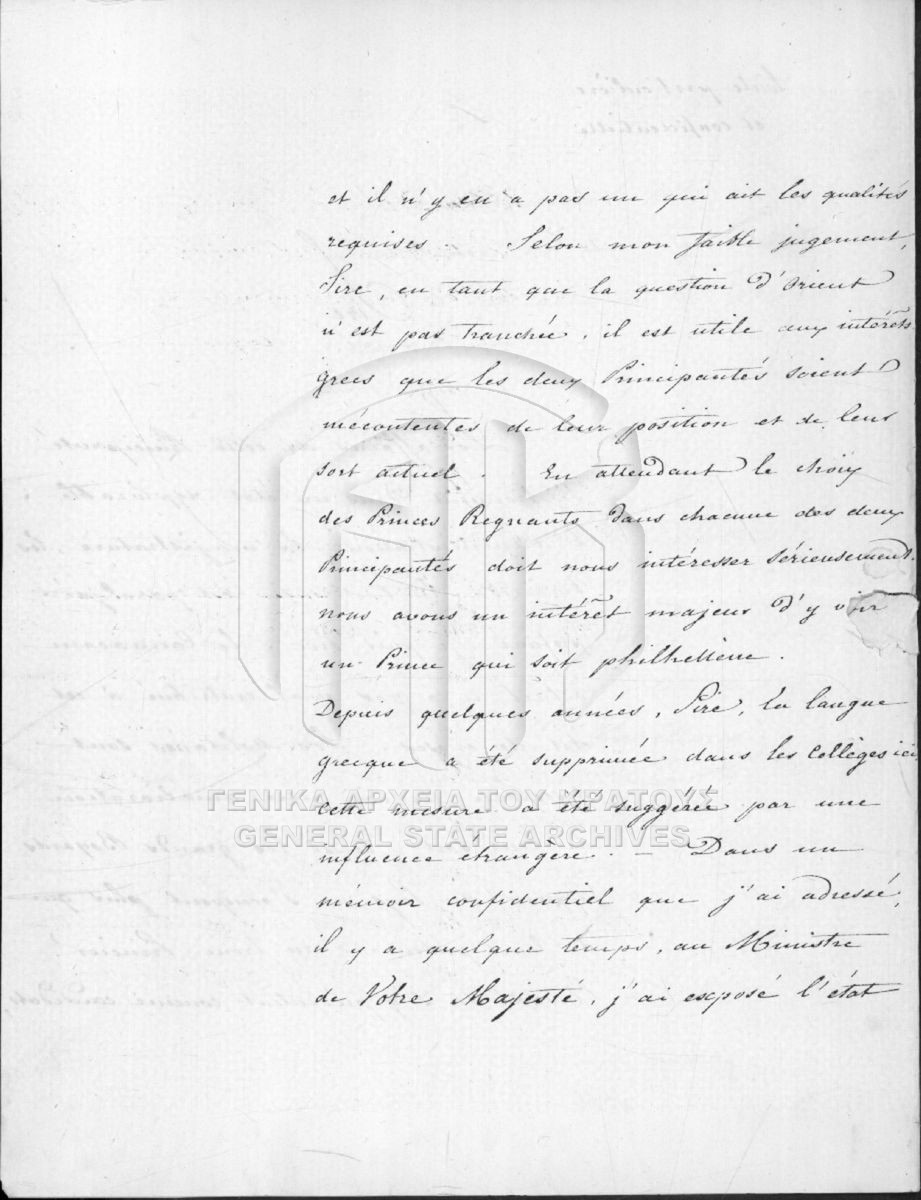 et il n'y en a pas un qui ait les qualités
requises. Selon mon faible jugement,
Sire, en tant que la question d'Orient
n'est pas tranchée, il est utile aux intérêts
grecs que les deux Principautés soient
mécontentes de leur position et de leur
sort actuel. En attendant le choix
des Princes Regnants dans chacune des deux
Principautés doit nous intéresser sérieusement.
nous avons un intérêt majeur d'y voir
un Prince qui soit philhellène.
Depuis quelques années, Sire, la langue
grecque a été supprimée dans les Collèges ici,
cette mesure a été suggérée par une
influence étrangère. — Dans un
mémoir confidentiel que j'ai adressé,
il y a quelque temps, au Ministre
de Votre Majesté, j'ai exposé l'état
ΓΕΝΙΚΑ ΑΡΧΕΙΑ ΤΟΥ ΚΡΑΤΟΥΣ
GENERAL STATE ARCHIVES